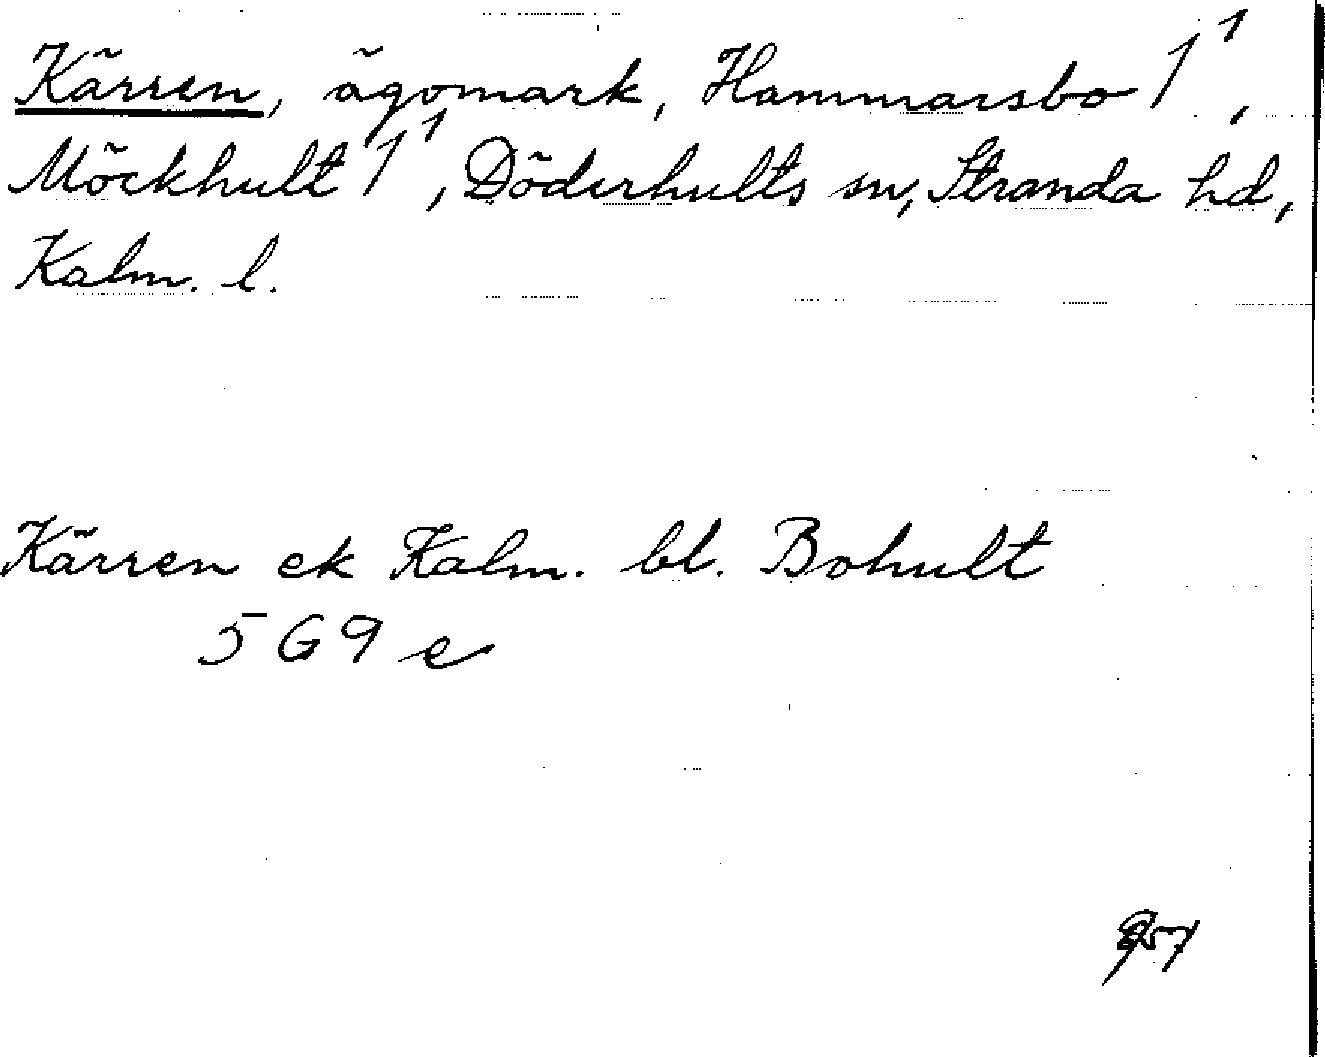 Kärren, ägomark, Hammarsbo 1¹,
Möckhult 1¹, Döderhults sn, Stranda hd,
Kalm. l.
Kärren ek Kalm. bl. Bohult
5G9e